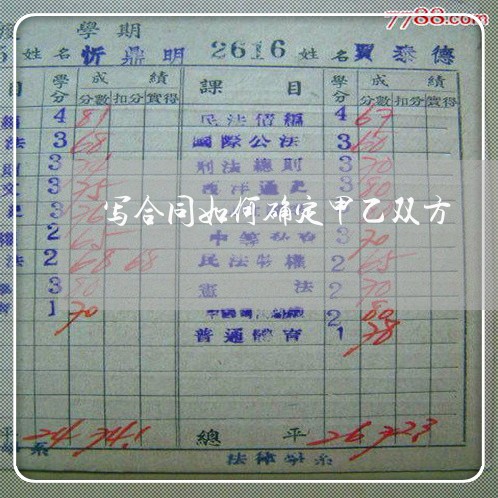 7788.com
學期
姓名 忻鼎明 2616 姓名 賈泰德
目 學分 成績 課目 學分 成績
分數 扣分 實得 分數 扣分 實得
4 81 民法債編 4 67
法 3 68 國際公法 3 60
3 刑法總則 3 70
文 3 75 西洋通史 3 80
写合同如何确定甲乙双方
2 65 3 70
法 2 68 68 民法物權 2 65
3 80 憲法 2 70
1 70 2 80
普通體育 1 78
平 24 74.1 總平 26 72.3
系 法律學系